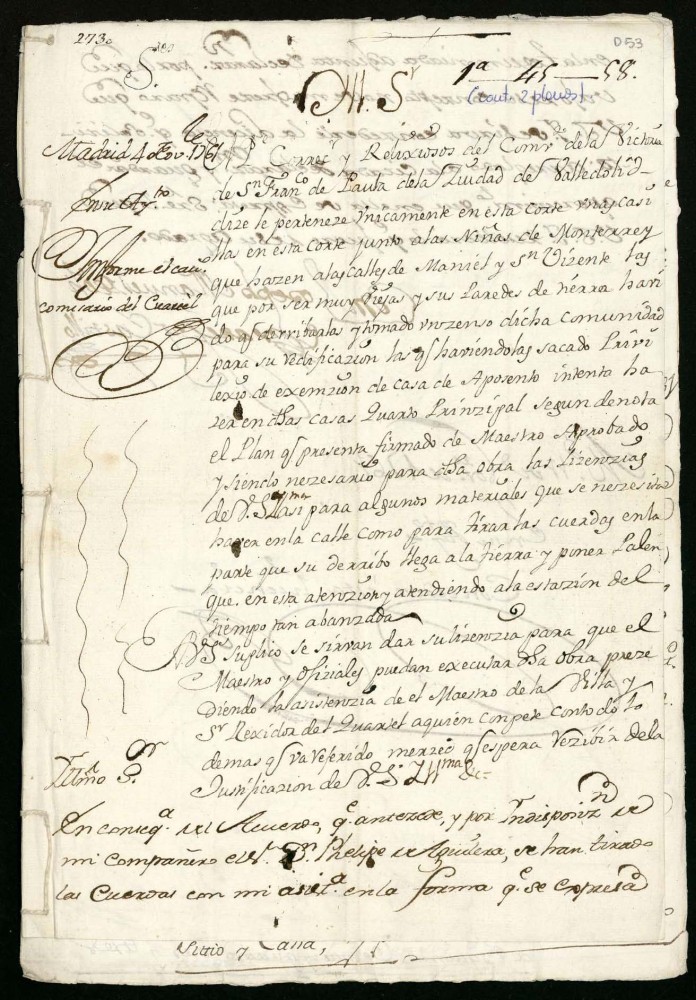 273o
D53
S.res
1ª - 45 - 58.
(cont. 2 planos)
Ill. S.r
Madrid 4 de Nov. 1761
En su Ay.to
Informe el cav.o
comisario del Cuartel
El P. Correc.r y Relixiosos del Comv.to de la Victoria
de S.n Fran.co de Paula de la Ziudad de Valledolid
dize le perteneze vnicamente en esta Corte vnas casi
llas en esta Corte junto a las Niñas de Monterrey
que hazen a las calles de Maniel y S.n Vizente las
que por ser muy viejas y sus Paredes de tierra havi
do q.e derribarlas y tomado vn zenso dicha comunidad
para su redificazion las q.e haviendolas sacado Privi
lexio de exempzion de casa de Aposento intenta ha
zer en dhas casas Quarto Prinzipal segun denota
el Plan q.e presenta firmado de Maestro Aprobado
y siendo nezesario para dha obra las Lizenzias
de V. S. Yll.ma asi para algunos materiales que se nezesita
hazer en la calle como para tirar las cuerdas en la
parte que su derribo llega a la tierra y poner Palen
que. en esta atenzion y atendiendo a la estazion del
tiempo tan abanzada
A V.S. Suplico se sirvan dar su lizenzia para que el
Maestro y Ofiziales puedan executar dha obra preze
diendo la asistenzia de el Maestro de la Villa y
S.r Rexidor del Quartel a quien conpete con todo lo
demas q.e va referido merzed q.e espera rezibir de la
Justificazion de V. S. Yll.ma &
Yllmo S.or
En conseq.a del Acuerdo, q.e antezede, y por Yndisposiz.n de
mi compañero el S.r D.n Phelipe de Aguilera, se han tirado
las Cuerdas con mi asist.a en la forma q.e se expresa
Sitio y Casa,